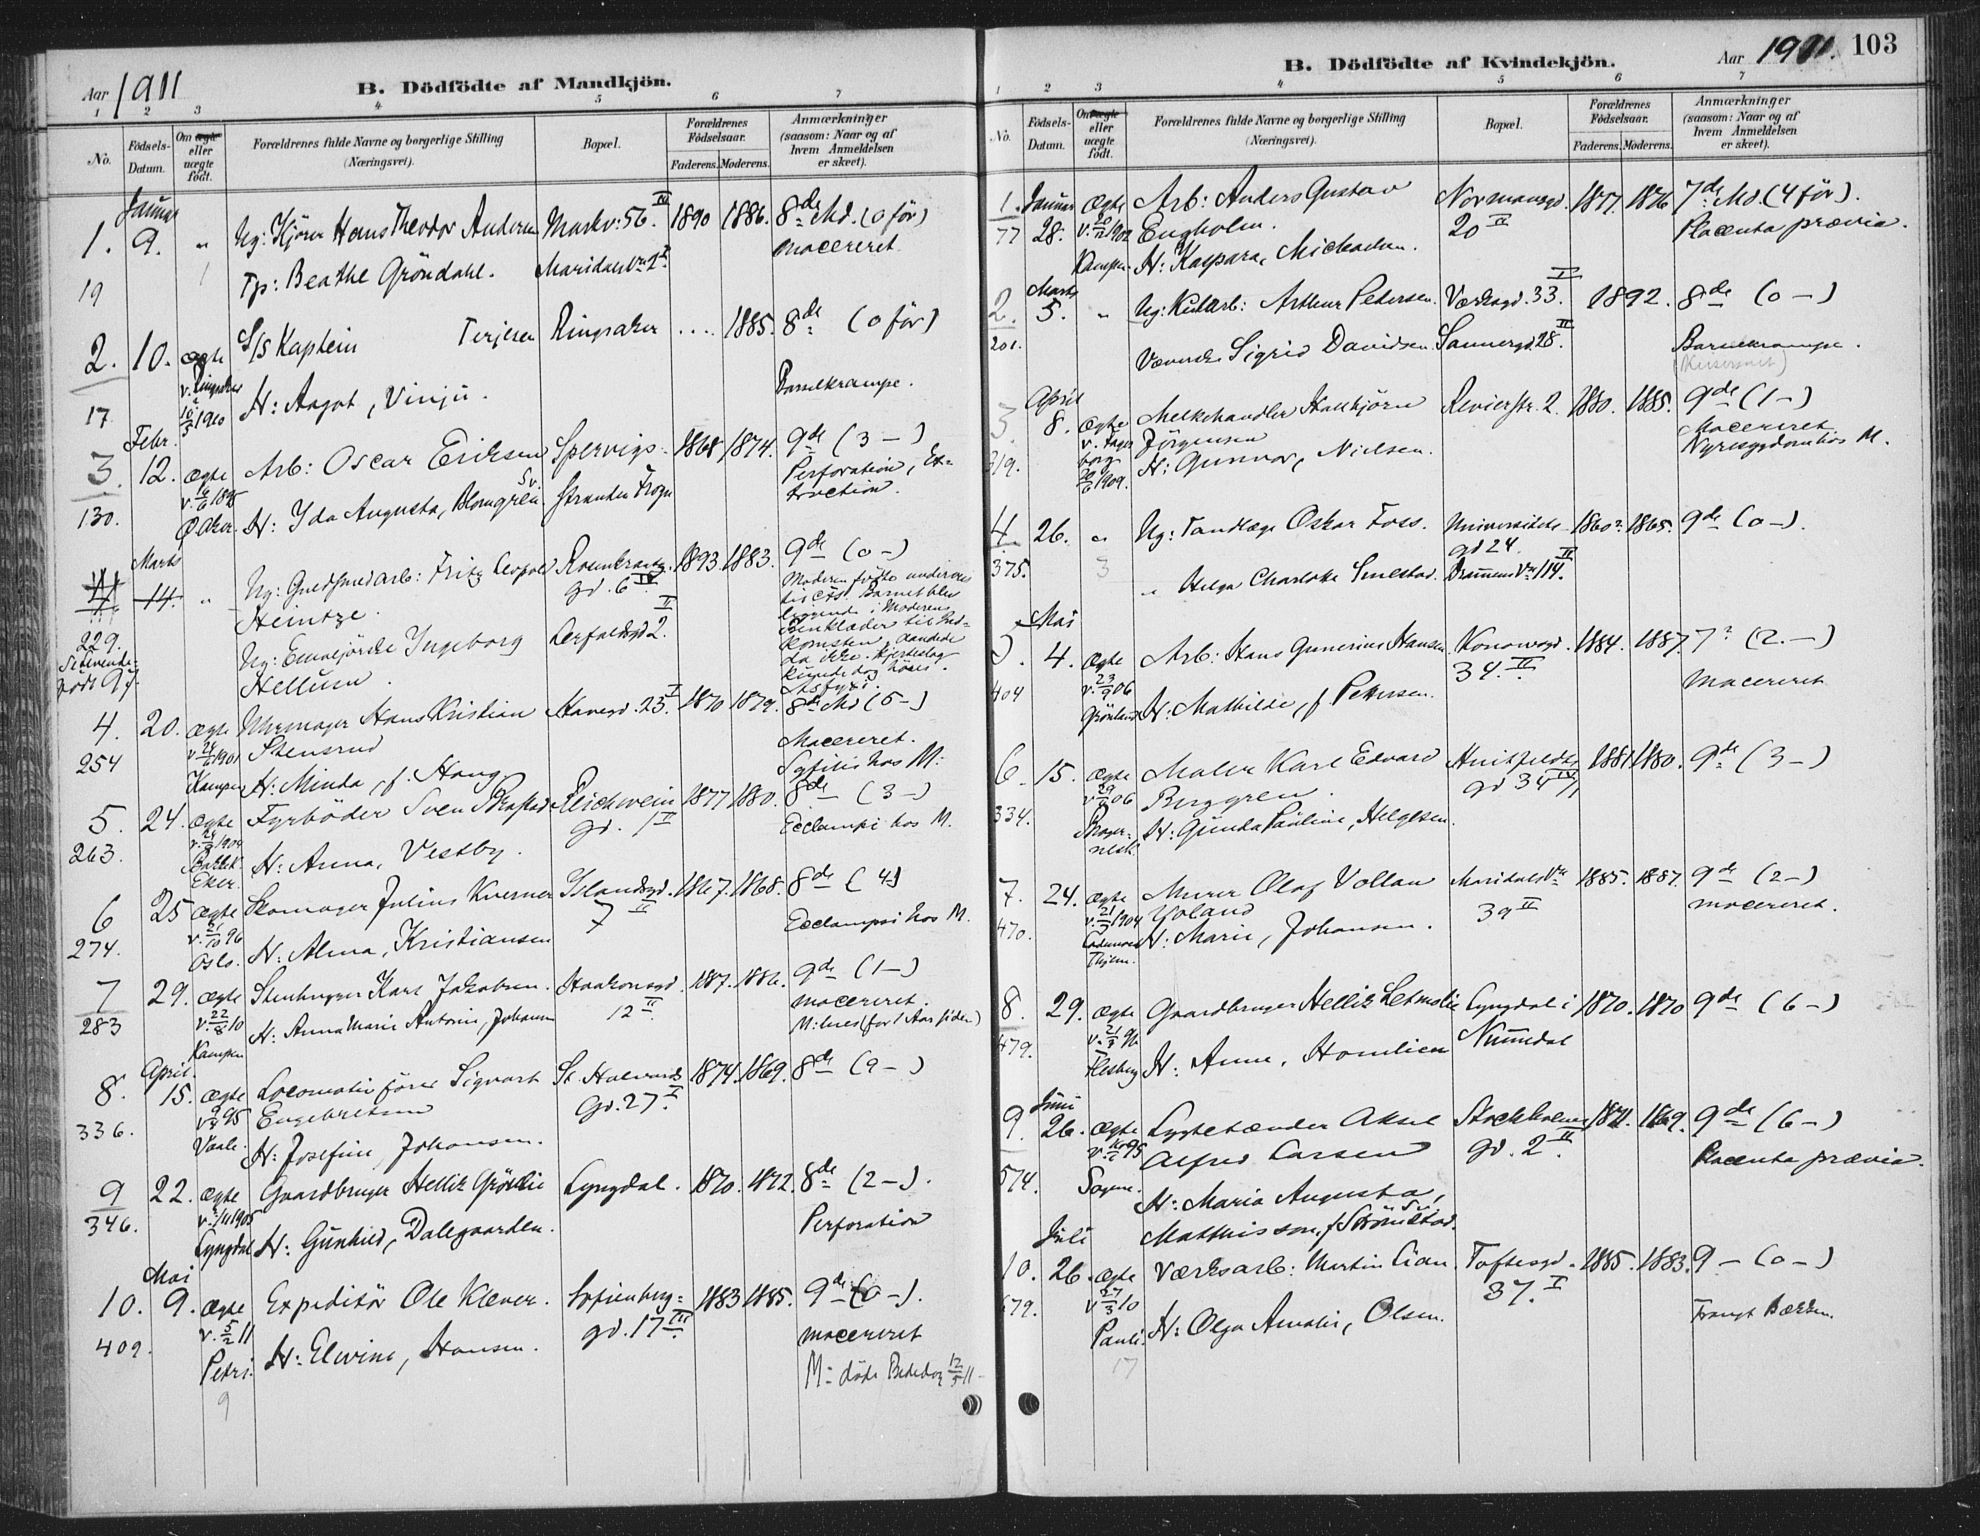 Aar 1911
B. Dödfödte af Mandkjön.
1 2 3 4 5 6 7
No.
Födsels-Datum.
Om ægte eller uægte födt.
Forældrenes fulde Navne og borgerlige Stilling (Næringsvei).
Bopæl.
Forældrenes Födselsaar.
Faderens. Moderens.
Anmærkninger (saasom: Naar og af hvem Anmeldelsen er skeet).
Januar
1. 9. " Ug: Kjörer Hans Theodor Andersen Markv: 56 IV 1890 1886. 8de Md. (0 för)
macereret
19 Tp: Beathe Gröndahl. Maridalsvn 2
2. 10. ægte S/S Kaptein Terjesen Ringsaker .... 1885. 8de (0 för)
v. Ringsaker
17 1910 H: Aagot, Vinju. Barselkrampe.
Febr.
3 12. ægte Arb: Oscar Eriksen Spervigs- 1868 1874. 9de (3 —)
Perforation, Ex-
traction
130. Aker. H: Ida Augusta, Blomgren Sv. stranden Frogn
Marts
14. " Ug: Guldsmedarb: Fritz Leopold Rosenkrantz- 1893. 1883. 9de (0 —)
Heintze. gd. 6 IV
Moderen födte underveis
til CS. Barnet blev
liggende i Moderens
Benklæder til Ned-
komsten, aandede
da ikke. Hjerteslag
kunde dog höres.
Asfyxi.
229. Ug: Ingeborg Lerfaldsgd 2. II
Hellum.
4. 20. ægte Uhrmager Hans Kristian Stavergd. 25. I 1870 1879. 8de Md (5 —)
Stensrud
Macereret.
254 Kampen H: Minda, f. Haug Syfilis hos M:
5. 24. ægte Fyrböder Sven Reichwein 1877 1880. 8de (3 —)
gd. 1 II
Ecclampsi hos M.
263. H: Anna, Vestby.
6 25 ægte Skomager Julius Kverner Islandsgd. 1867. 1868. 8de (4)
7 II
Ecclampsi hos M.
274. v. 96 Oslo. H: Alma, Kristiansen
7 29. ægte Stenhugger Karl Jakobsen. Haakonsgd. 1887. 1886. 9de (1 —)
12 II
macereret.
283 v. 22/8 10 Kampen H: Anna Marie Antonie, Johansen M: lues (for 1 Aar siden)
April.
8. 15. ægte Locomotivförer Sigvart St. Halvards 1874. 1869. 8de (9 —)
Engebretsen gd. 27. I
336. Vaale H: Josefine, Johansen.
9 22. ægte Gaardbruger Hellik Lyngdal. 1870. 1872. 8de (2 —).
Perforation
346. Lyngdal H: Gunhild, Dalsgaarden.
Mai
10. 9. ægte Expeditör Ole Klever. Sofienberg- 1883 1885. 9de (0 —).
gd. 17 III
macereret
409. v. 5/2 11 Petri. H: Elvine, Hansen.
M: döde 12/5 11
9
103
Aar 1911.
B. Dödfödte af Kvindekjön.
1 2 3 4 5 6 7
No.
Födsels-Datum.
Om ægte eller uægte födt.
Forældrenes fulde Navne og borgerlige Stilling (Næringsvei).
Bopæl.
Forældrenes Födselsaar.
Faderens. Moderens.
Anmærkninger (saasom: Naar og af hvem Anmeldelsen er skeet).
1. Januar ægte Arb: Anders Gustav Normansgd. 1877. 1876 7de Md (4 för).
77 28. Engholm. 20 II Placenta prævia.
Kampen H: Kaspara, Michaelsen.
Marts
2. 5. " Ug: Arthur Petersen. Værksgd. 33. I 1892. 8de (0 —)
201. Væverske Sigrid Davidsen Sannergd. 28. II Barselkrampe.
(Keisersnit)
April
3 8. ægte Melkehandler Hallbjörn Revierstr. 2. 1880. 1885. 9de (1 —)
v. Fagerborg Jörgensen Macereret
319. 1909. H: Gunvor, Nielsen. Nyresygdom hos M.
4 26. " Ug: Tandlæge Oskar Foss. Universitets- 1860? 1865. 9de (0 —).
gd 24.
375. 3 " Helga Charlotte Smestad. Drammensvn 114. II
Mai
5. 4. ægte Arb: Hans Gunerius Hansen Konowsgd. 1884. 1887. 7? (2. —)
34. II
macereret
404 v. 23/9 06 Grönland H: Mathilde, f. Pettersen.
6. 15. ægte Maler Karl Edvard Huitfeldts- 1881 1880. 9de (3 —)
Berggren. gd 34 IV
334. H: Gunda Pauline, Helgesen.
7. 24. ægte Murer Olaf Vollan Maridalsvn 1885. 1887. 9de (2 —)
39 II macereret.
470. 1904 H: Marie, Johansen.
8. 29. ægte Gaardbruger Hellik Lyngdal i 1870. 1870 9de (6 —)
479. v. 96 Flesberg H: Anne, Numedal
Juni
9. 26. ægte Lygtetænder Aksel Stockholms- 1871. 1869. 9de (6 —)
Alfred Larsen gd. 2 II Placenta prævia.
574. Sagene. H: Maria Augusta,
Mathisson, f. Strömstad.
Juli
10. 26. ægte Værksarb: Martin Lian. Toftesgd. 1885. 1883. 9 — (0 —)
37. I
679. v. 27/3 10 Pauli. H: Olga Amalie, Olsen. Trangt Bækken.
17